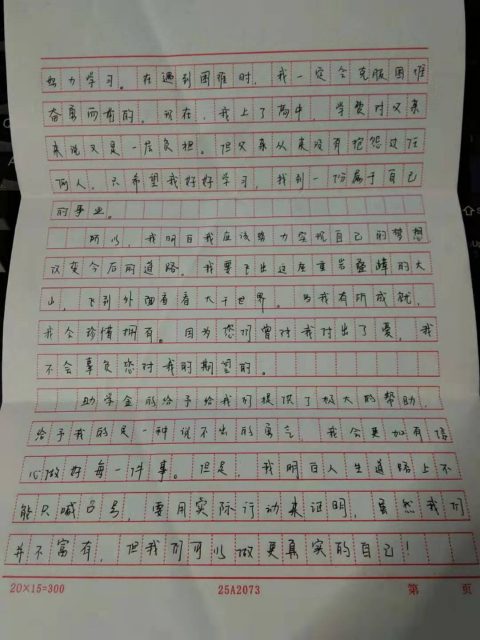 努力学习。在遇到困难时，我一定会克服困难
奋勇而前的。现在，我上了高中，学费对父亲
来说又是一层负担。但父亲从来没有抱怨过任
何人，只希望我好好学习，找到一份属于自己
的事业。
所以，我明白我应该努力实现自己的梦想
改变今后的道路。我要飞出这座重岩叠嶂的大
山，飞到外面看看大千世界。当我有所成就，
我会珍惜拥有。因为您们曾对我付出了爱，我
不会辜负您对我的期望的。
助学金的给予给我们提供了极大的帮助，
给予我的是一种说不出的勇气，我会更加有信
心做好每一件事。但是，我明白人生道路上不
能只喊口号，要用实际行动来证明，虽然我们
并不富有，但我们可以做更真实的自己！
20×15=300 25A2073 第 页